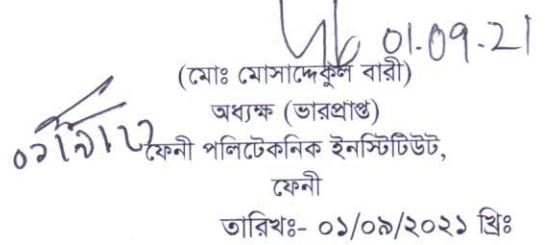 01.09.21
(মোঃ মোসাদ্দেকুল বারী)
অধ্যক্ষ (ভারপ্রাপ্ত)
ফেনী পলিটেকনিক ইনস্টিটিউট,
ফেনী
তারিখঃ- ০১/০৯/২০২১ খ্রিঃ